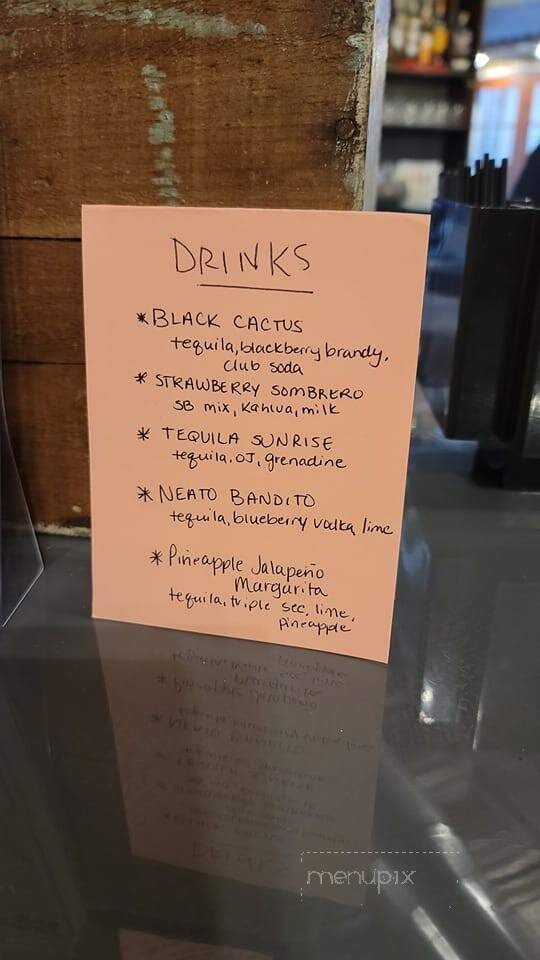 DRINKS
*BLACK CACTUS
tequila, blackberry brandy,
club soda
* STRAWBERRY SOMBRERO
SB mix, Kahlua, milk
* TEQUILA SUNRISE
tequila, OJ, grenadine
* NEATO BANDITO
tequila, blueberry vodka, lime
* Pineapple Jalapeño
Margarita
tequila, triple sec, lime,
pineapple
menupix